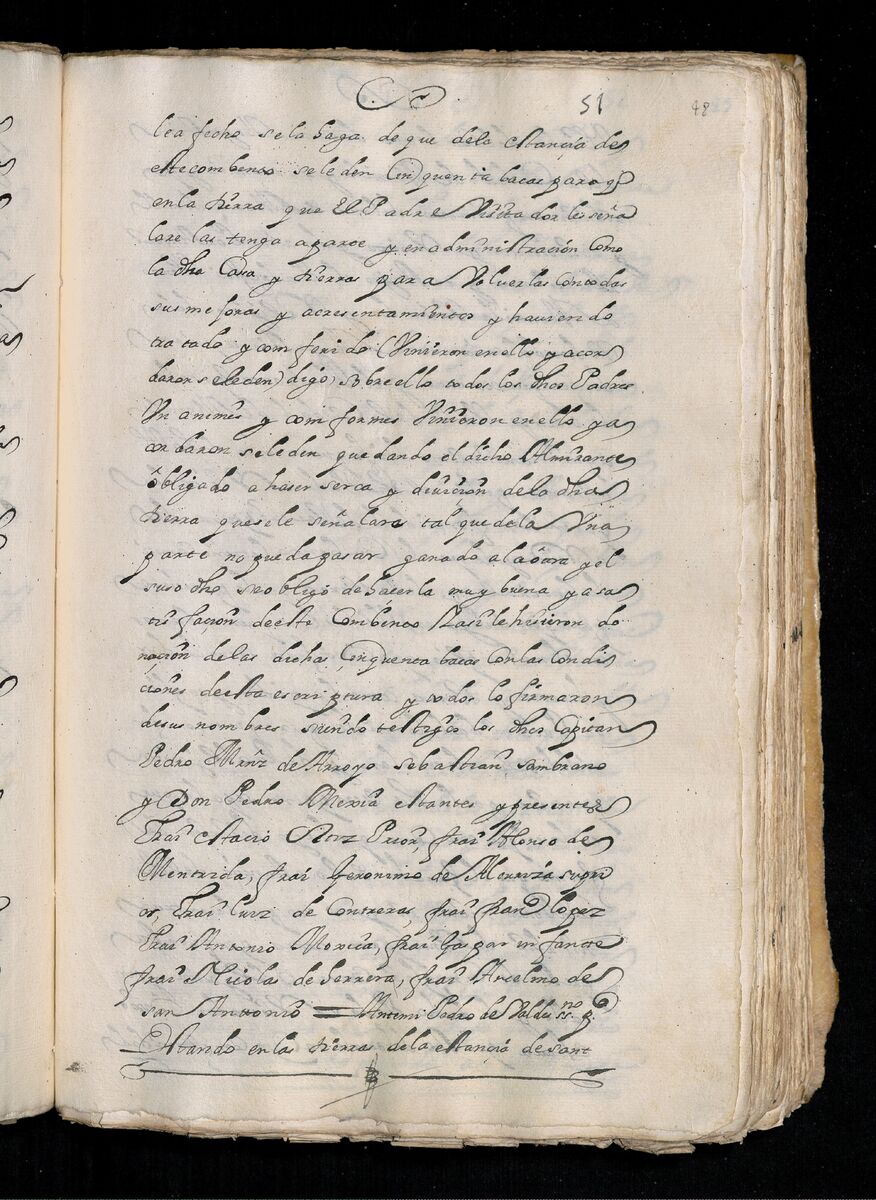 51
48
le a fecho se la haga de que de la estançia de
este combento se le den Cinquenta bacas para q̃
en la tierra que El Padre Visitador les seña
lare las tenga aparte y en administraçión Como
la dha Casa y tierras para Volverlas con todas
sus mejoras y acresentamientos y haviendo
tratado y comferido (Vinieron en ello y acor
daron se le den) digo, sobre ello todos los dhos Padres
Un animes y comformes Vinieron en ello y a
cordaron se le den quedando el dicho Almirante
obligado a haser serca y diviçión de la dha
tierra que se le señalara tal que de la Una
parte no pueda pasar ganado a la otra y el
suso dho se obligó de hacerla muy buena y a sa
tisfaçion de este Combento Y asi le hisieron do
naçion de las dichas Cinquenta bacas con las condi
ciones de esta escriptura y todos lo firmaron
de sus nombres siendo testigos los dhos Capitan
Pedro Mrñz de Arroyo sebastian sambrano
y Don Pedro Mexia estantes y presentes
Frai estacio Ortiz Prior, frai Alonso de
Mentrida, frai Geronimo de supri
or, Frai luiz de Contreras, frai franco lopez
Frai Antonio Moxica, frai Gaspar infante
frai Nicolas de herrera, frai Anselmo de
san Antonio = Antemi Pedro de Valdes ss.no p.co
Estando en las tierras de la estançia de sant